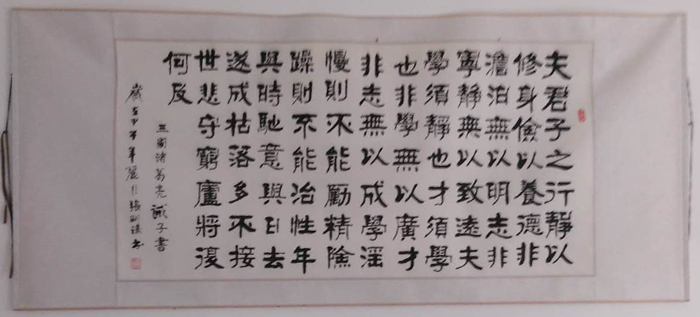 夫君子之行靜以
修身儉以養德非
澹泊無以明志非
寧靜無以致遠夫
學須靜也才須學
也非學無以廣才
非志無以成學滛
慢則不能勵精險
躁則不能治性年
與時馳意與日去
遂成枯落多不接
世悲守窮廬將復
何及
三國諸葛亮誡子書
歲在甲午年 書